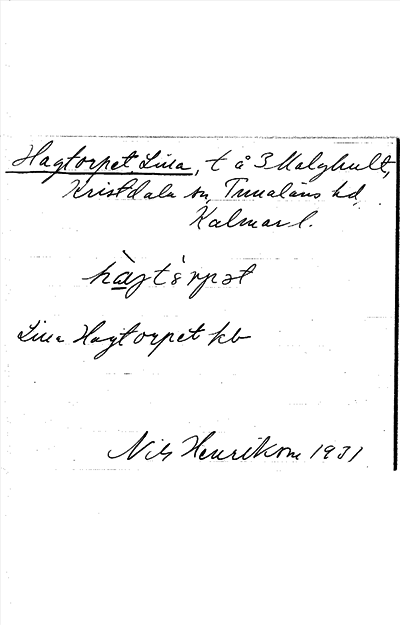 Hagtorpet, Lina, t å 3 Malghult,
Kristdala sn, Tunaläns hd
Kalmar l.
hàgtòrpət
Lina Hagtorpet kb
Nils Henrikson 1931